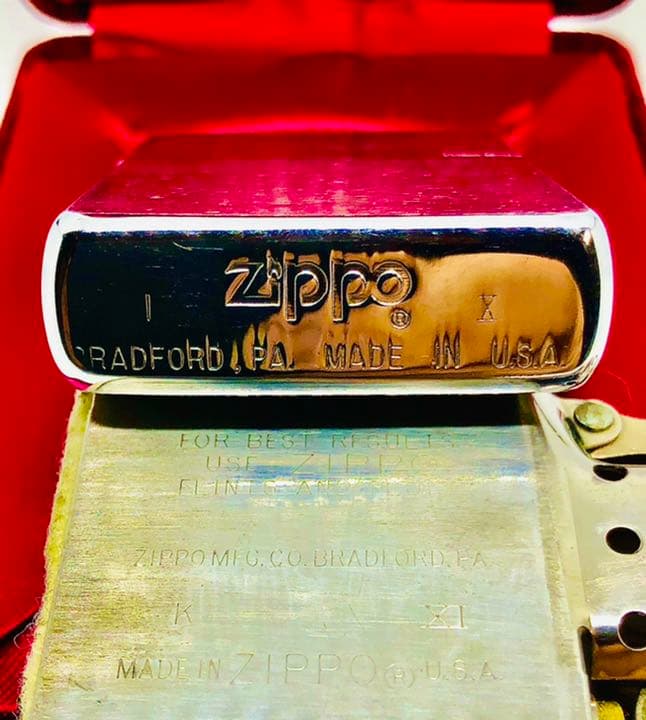 zippo®
I X
BRADFORD, PA. MADE IN U.S.A.
FOR BEST RESULTS
USE ZIPPO
FLINTS AND
ZIPPO MFG. CO. BRADFORD, PA.
K XI
MADE IN ZIPPO® U.S.A.